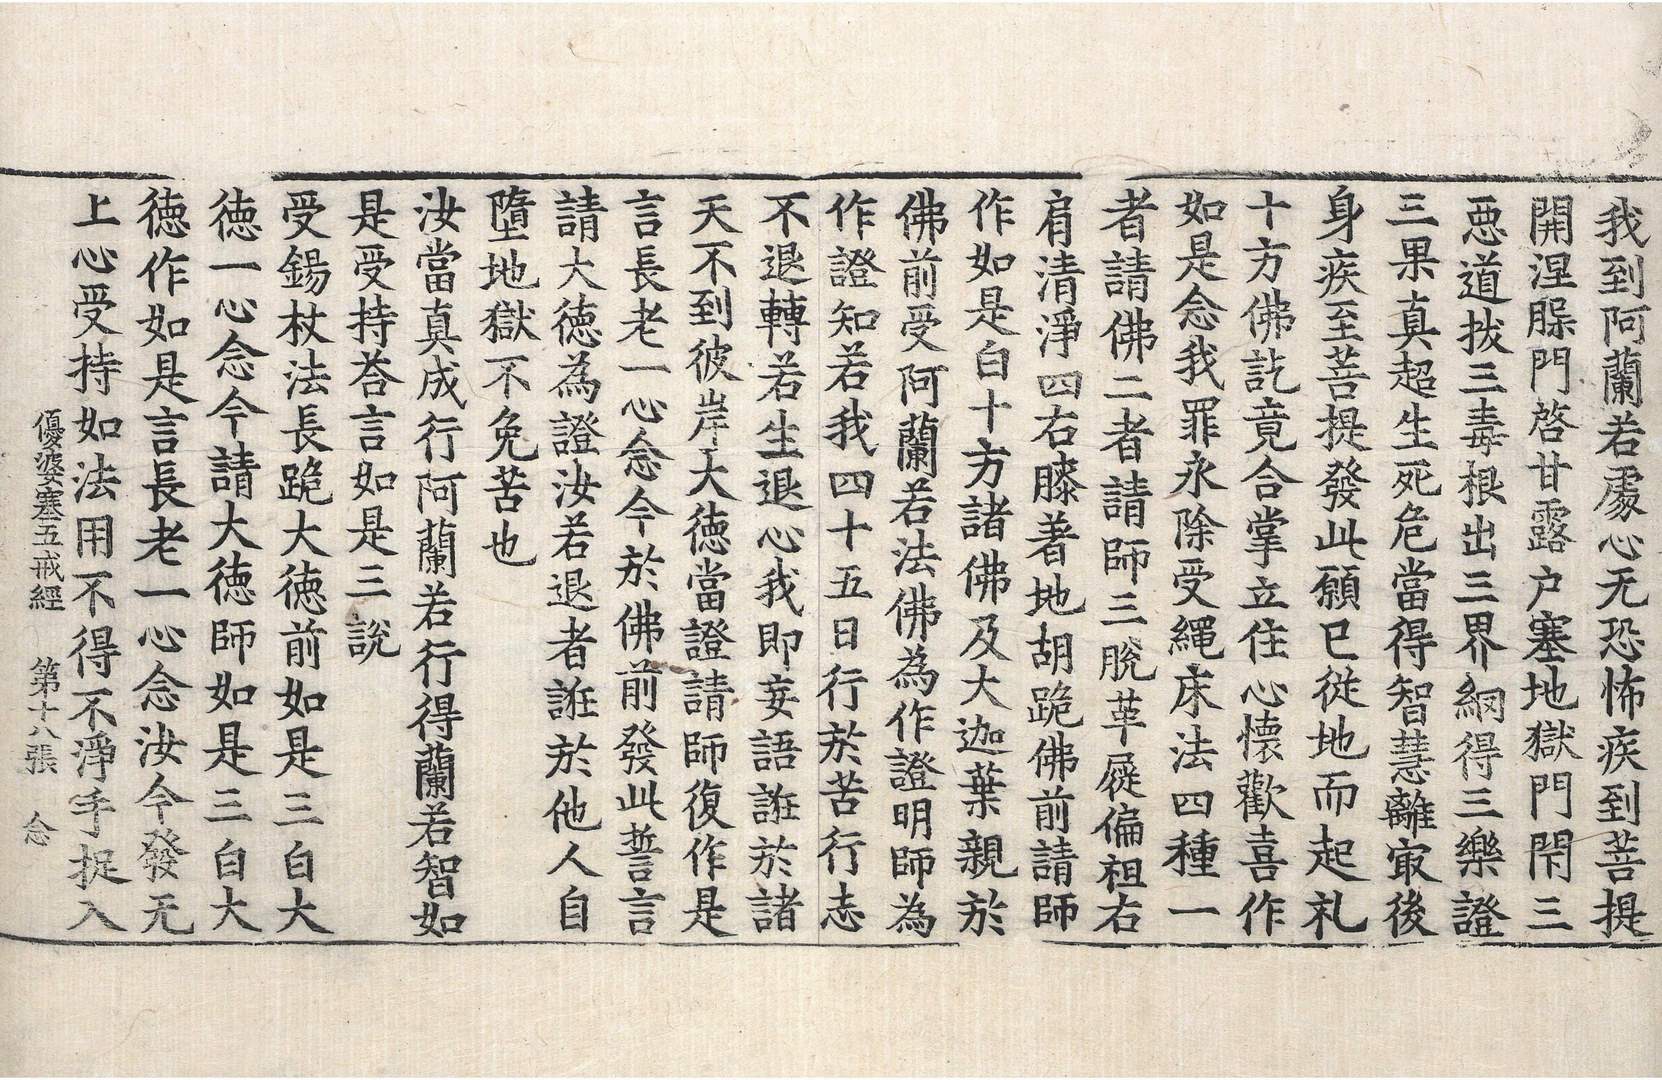 我到阿蘭若處心无恐怖疾到菩提
開涅槃門啓甘露户塞地獄門閇三
惡道拔三毒根出三界網得三樂證
三果真超生死危當得智慧離㝡後
身疾至菩提發此願已從地而起礼
十方佛訖竟合掌立住心懷歡喜作
如是念我罪永除受繩床法四種一
者請佛二者請師三脫革屣偏袒右
肩清淨四右膝著地胡跪佛前請師
作如是白十方諸佛及大迦葉親於
佛前受阿蘭若法佛為作證明師為
作證知若我四十五日行於苦行志
不退轉若生退心我即妄語誑於諸
天不到彼岸大德當證請師復作是
言長老一心念今於佛前發此誓言
請大德為證汝若退者誑於他人自
墮地獄不免苦也
汝當真成行阿蘭若行得蘭若智如
是受持荅言如是三說
受錫杖法長跪大德前如是三白大
德一心念今請大德師如是三白大
德作如是言長老一心念汝今發无
上心受持如法用不得不淨手捉入
優婆塞五戒經 第十八張 念